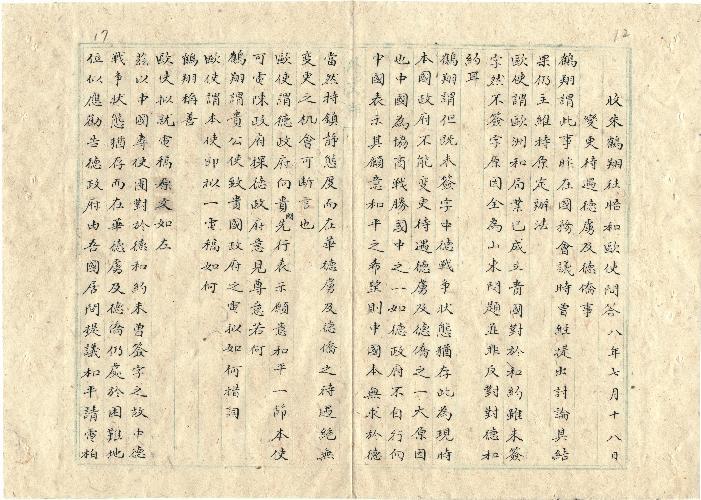 12
收朱鶴翔往晤和歐使問答八年七月十八日
變更待遇德虜及德僑事
鶴翔謂此事昨在國務會議時曾經提出討論其結
果仍主維持原定辦法
歐使謂歐洲和局業已成立貴國對於和約雖未簽
字然不簽字原因全為山東問題並非反對對德和
約耳
鶴翔謂但既未簽字中德戰爭狀態猶存此為現時
本國政府不能變更待遇德虜及德僑之一大原因
也中國為協商戰勝國中之一如德政府不自行向
中國表示其願意和平之希望則中國本無求於德
17
當然持鎮靜態度而在華德虜及德僑之待遇絕無
變更之机會可斷言也
歐使謂德政府向貴國先行表示願意和平一節本使
可電陳政府探德政府意見尊意若何
鶴翔謂貴公使致貴國政府之電擬如何措詞
歐使謂本使卽擬一電稿如何
鶴翔稱善
歐使擬就電稿原文如左
茲以中國專使團對於德和約未曾簽字之故中德
戰爭狀態猶存而在華德虜及德僑仍處於困難地
位似應勸告德政府由吾國居間提議和平請電柏